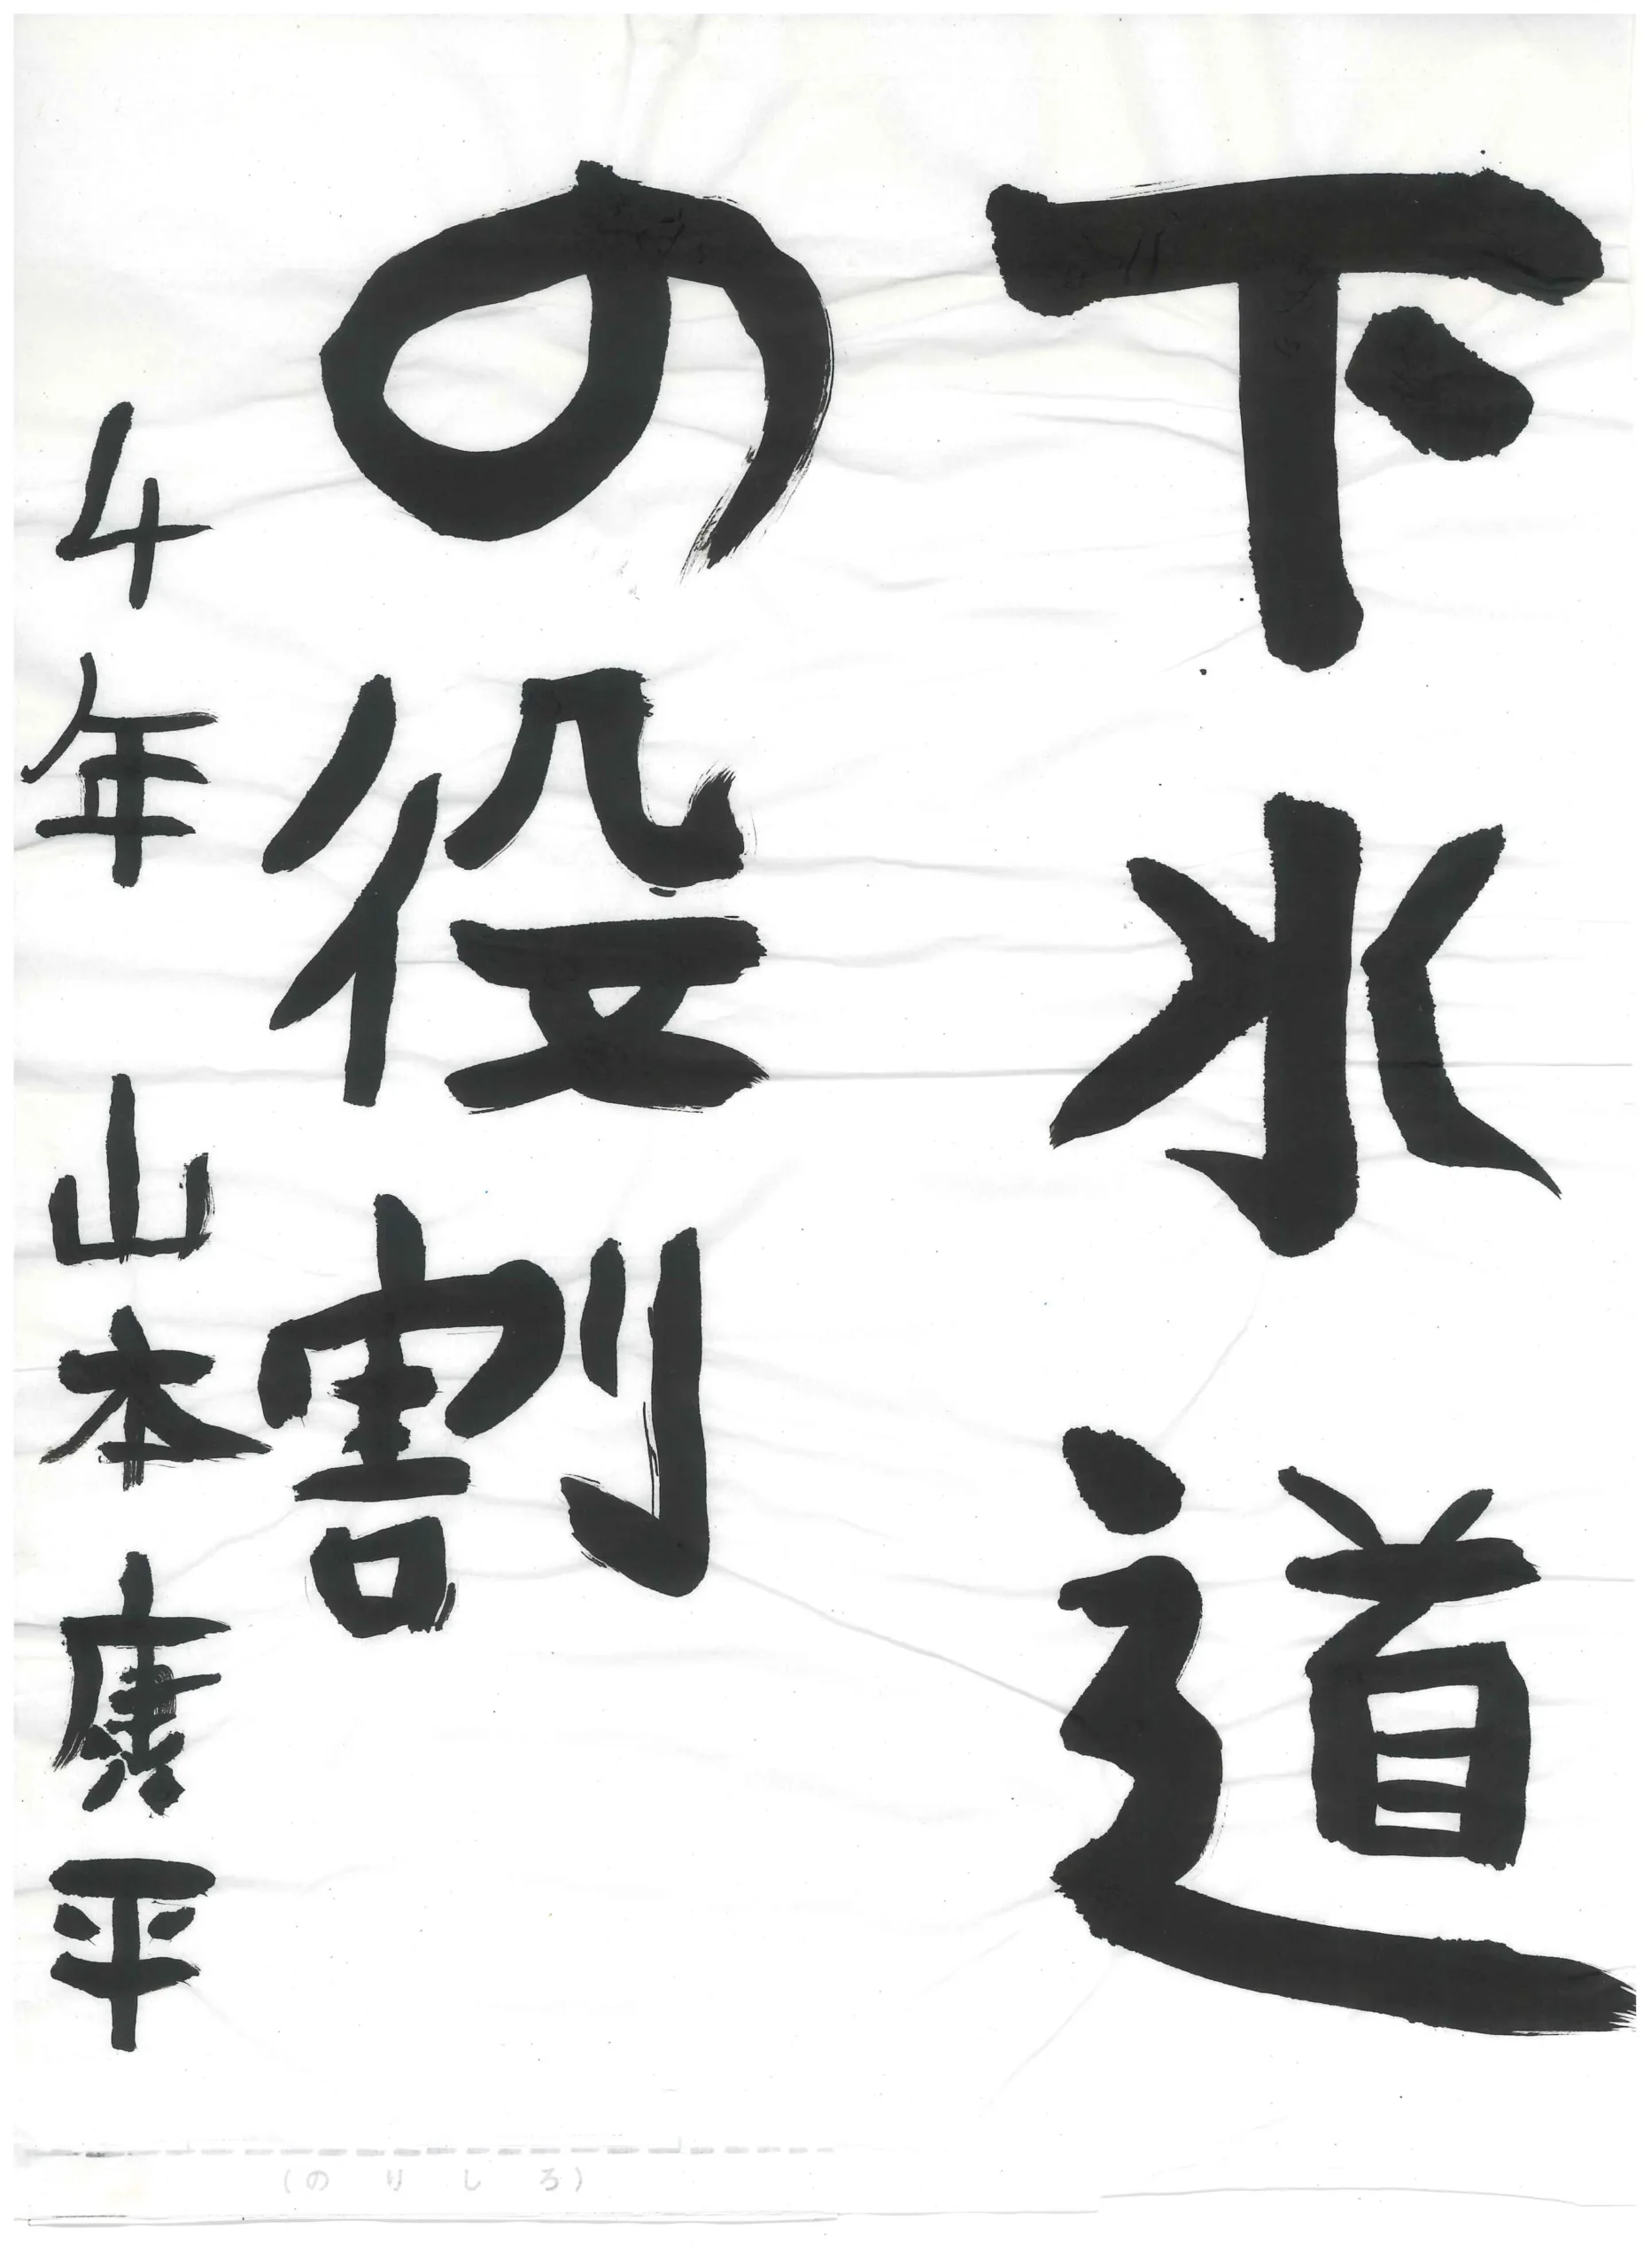 下水道
の役割
4年 山本康平
(のりしろ)